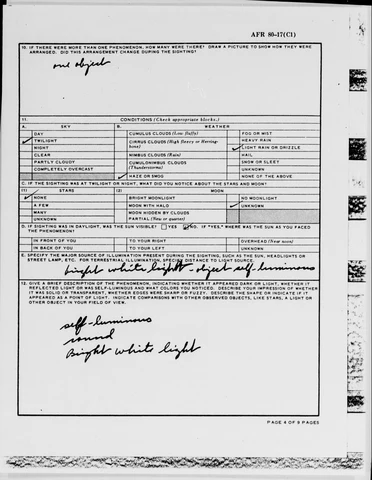 AFR 80-17(C1)
10. IF THERE WERE MORE THAN ONE PHENOMENON, HOW MANY WERE THERE? DRAW A PICTURE TO SHOW HOW THEY WERE
ARRANGED. DID THIS ARRANGEMENT CHANGE DURING THE SIGHTING?
one object
11. CONDITIONS (Check appropriate blocks.)
A. SKY B. WEATHER
DAY CUMULUS CLOUDS (Low fluffy) FOG OR MIST
TWILIGHT CIRRUS CLOUDS (High fleecy or Herring-bone) HEAVY RAIN
NIGHT LIGHT RAIN OR DRIZZLE
CLEAR NIMBUS CLOUDS (Rain) HAIL
PARTLY CLOUDY CUMULONIMBUS CLOUDS (Thunderstorms) SNOW OR SLEET
COMPLETELY OVERCAST UNKNOWN
HAZE OR SMOG NONE OF THE ABOVE
C. IF THE SIGHTING WAS AT TWILIGHT OR NIGHT, WHAT DID YOU NOTICE ABOUT THE STARS AND MOON?
(1) STARS (2) MOON
NONE BRIGHT MOONLIGHT NO MOONLIGHT
A FEW MOON WITH HALO UNKNOWN
MANY MOON HIDDEN BY CLOUDS
UNKNOWN PARTIAL (New or quarter)
D. IF SIGHTING WAS IN DAYLIGHT, WAS THE SUN VISIBLE? YES NO. IF "YES," WHERE WAS THE SUN AS YOU FACED
THE PHENOMENON?
IN FRONT OF YOU TO YOUR RIGHT OVERHEAD (Near noon)
IN BACK OF YOU TO YOUR LEFT UNKNOWN
E. SPECIFY THE MAJOR SOURCE OF ILLUMINATION PRESENT DURING THE SIGHTING, SUCH AS THE SUN, HEADLIGHTS OR
STREET LAMP, ETC. FOR TERRESTRIAL ILLUMINATION, SPECIFY DISTANCE TO LIGHT SOURCE.
bright white light - object self-luminous
12. GIVE A BRIEF DESCRIPTION OF THE PHENOMENON, INDICATING WHETHER IT APPEARED DARK OR LIGHT, WHETHER IT
REFLECTED LIGHT OR WAS SELF-LUMINOUS AND WHAT COLORS YOU NOTICED. DESCRIBE YOUR IMPRESSION OF WHETHER
IT WAS SOLID OR TRANSPARENT, WHETHER EDGES WERE SHARP OR FUZZY. DESCRIBE THE SHAPE OR INDICATE IF IT
APPEARED AS A POINT OF LIGHT. INDICATE COMPARISONS WITH OTHER OBSERVED OBJECTS, LIKE STARS, A LIGHT OR
OTHER OBJECT IN YOUR FIELD OF VIEW.
self-luminous
round
Bright white light
PAGE 4 OF 9 PAGES